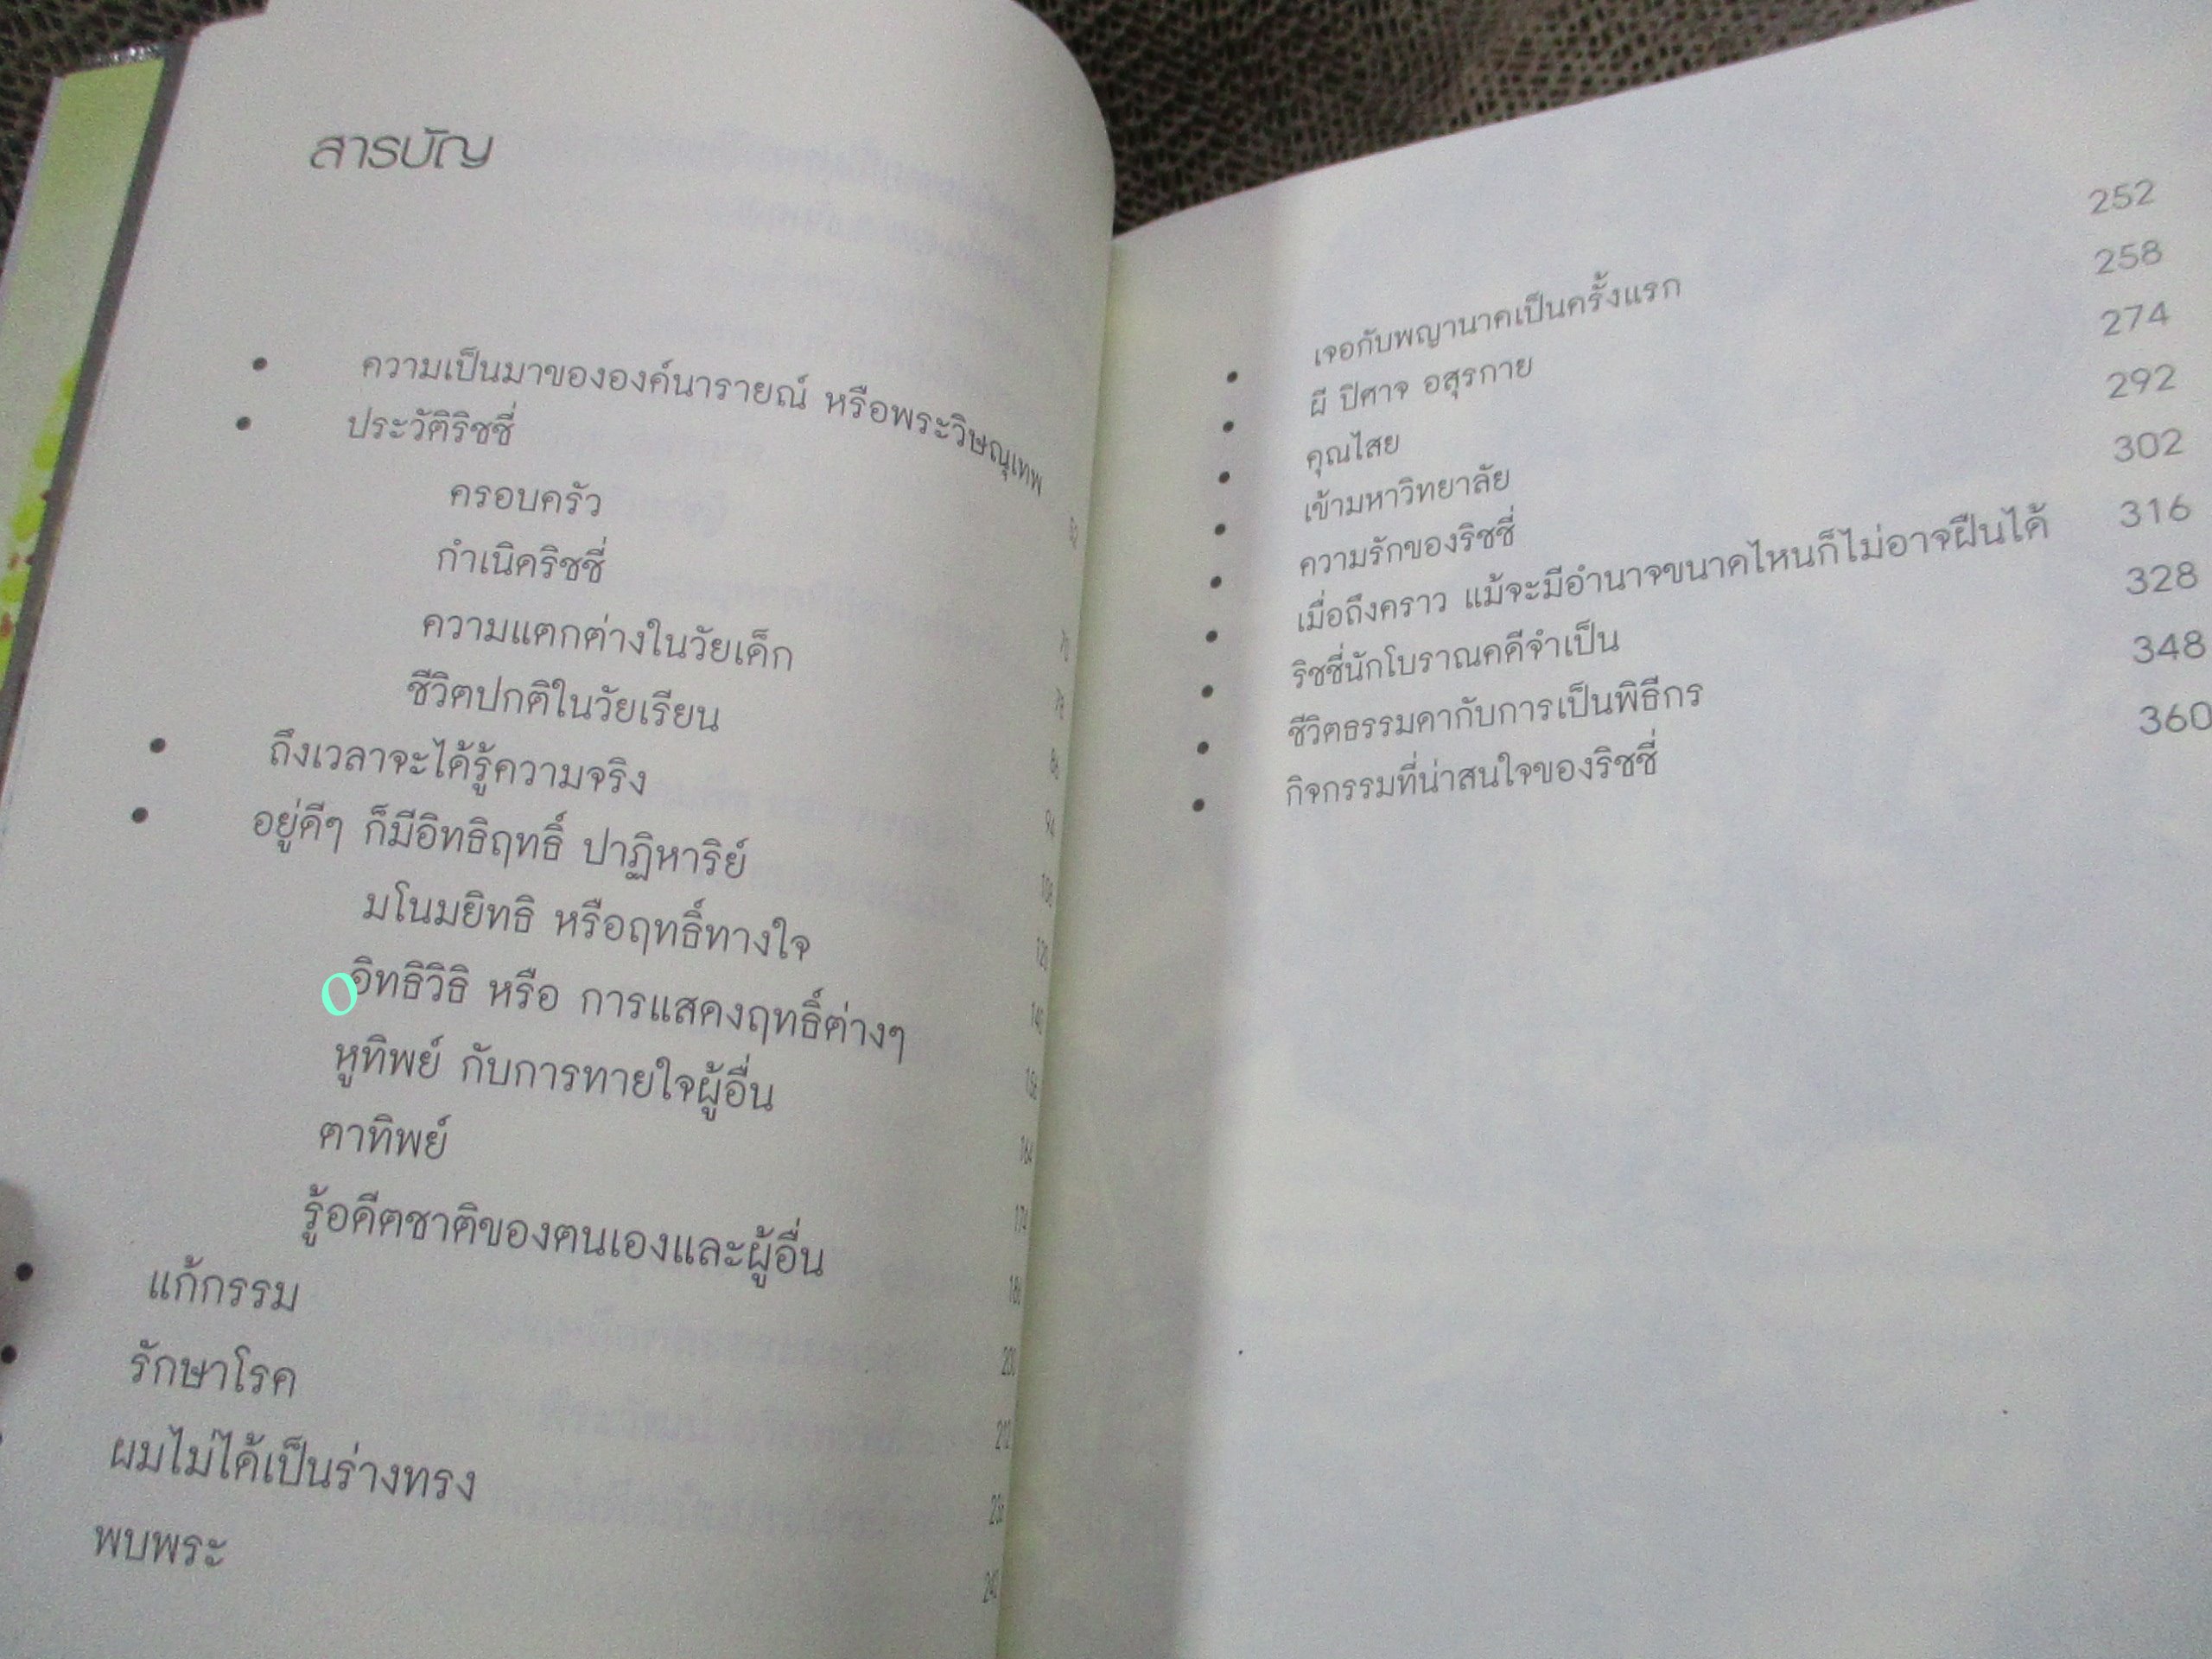 สารบัญ
ความเป็นมาขององค์นารายณ์ หรือพระวิษณุเทพ
ประวัติริชชี่
ครอบครัว
กำเนิดริชชี่
ความแตกต่างในวัยเด็ก
ชีวิตปกติในวัยเรียน
ถึงเวลาจะได้รู้ความจริง
อยู่ดีๆ ก็มีอิทธิฤทธิ์ ปาฏิหาริย์ 94
มโนมยิทธิ หรือฤทธิ์ทางใจ 108
อิทธิวิธิ หรือ การแสดงฤทธิ์ต่างๆ 120
หูทิพย์ กับการทายใจผู้อื่น 140
ตาทิพย์ 158
รู้อดีตชาติของตนเองและผู้อื่น 164
แก้กรรม 174
รักษาโรค
ผมไม่ได้เป็นร่างทรง 212
พบพระ
เจอกับพญานาคเป็นครั้งแรก 252
ผี ปีศาจ อสุรกาย 258
คุณไสย 274
เข้ามหาวิทยาลัย 292
ความรักของริชชี่ 302
เมื่อถึงคราว แม้จะมีอำนาจขนาดไหนก็ไม่อาจฝืนได้ 316
ริชชี่นักโบราณคดีจำเป็น 328
ชีวิตธรรมดากับการเป็นพิธีกร 348
กิจกรรมที่น่าสนใจของริชชี่ 360